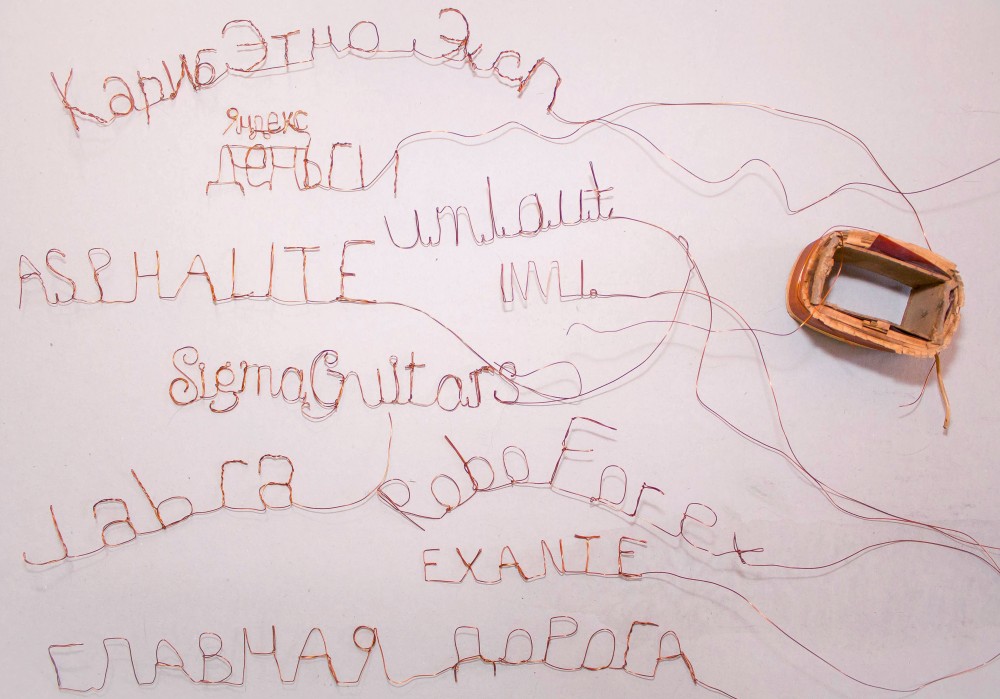 Кариб Этно Эксп
Яндекс
деньги
umlaut
ASPHALITE
IML
Sigma Guitars
Jabra
RoboForex
EXANTE
ГЛАВНАЯ ДОРОГА